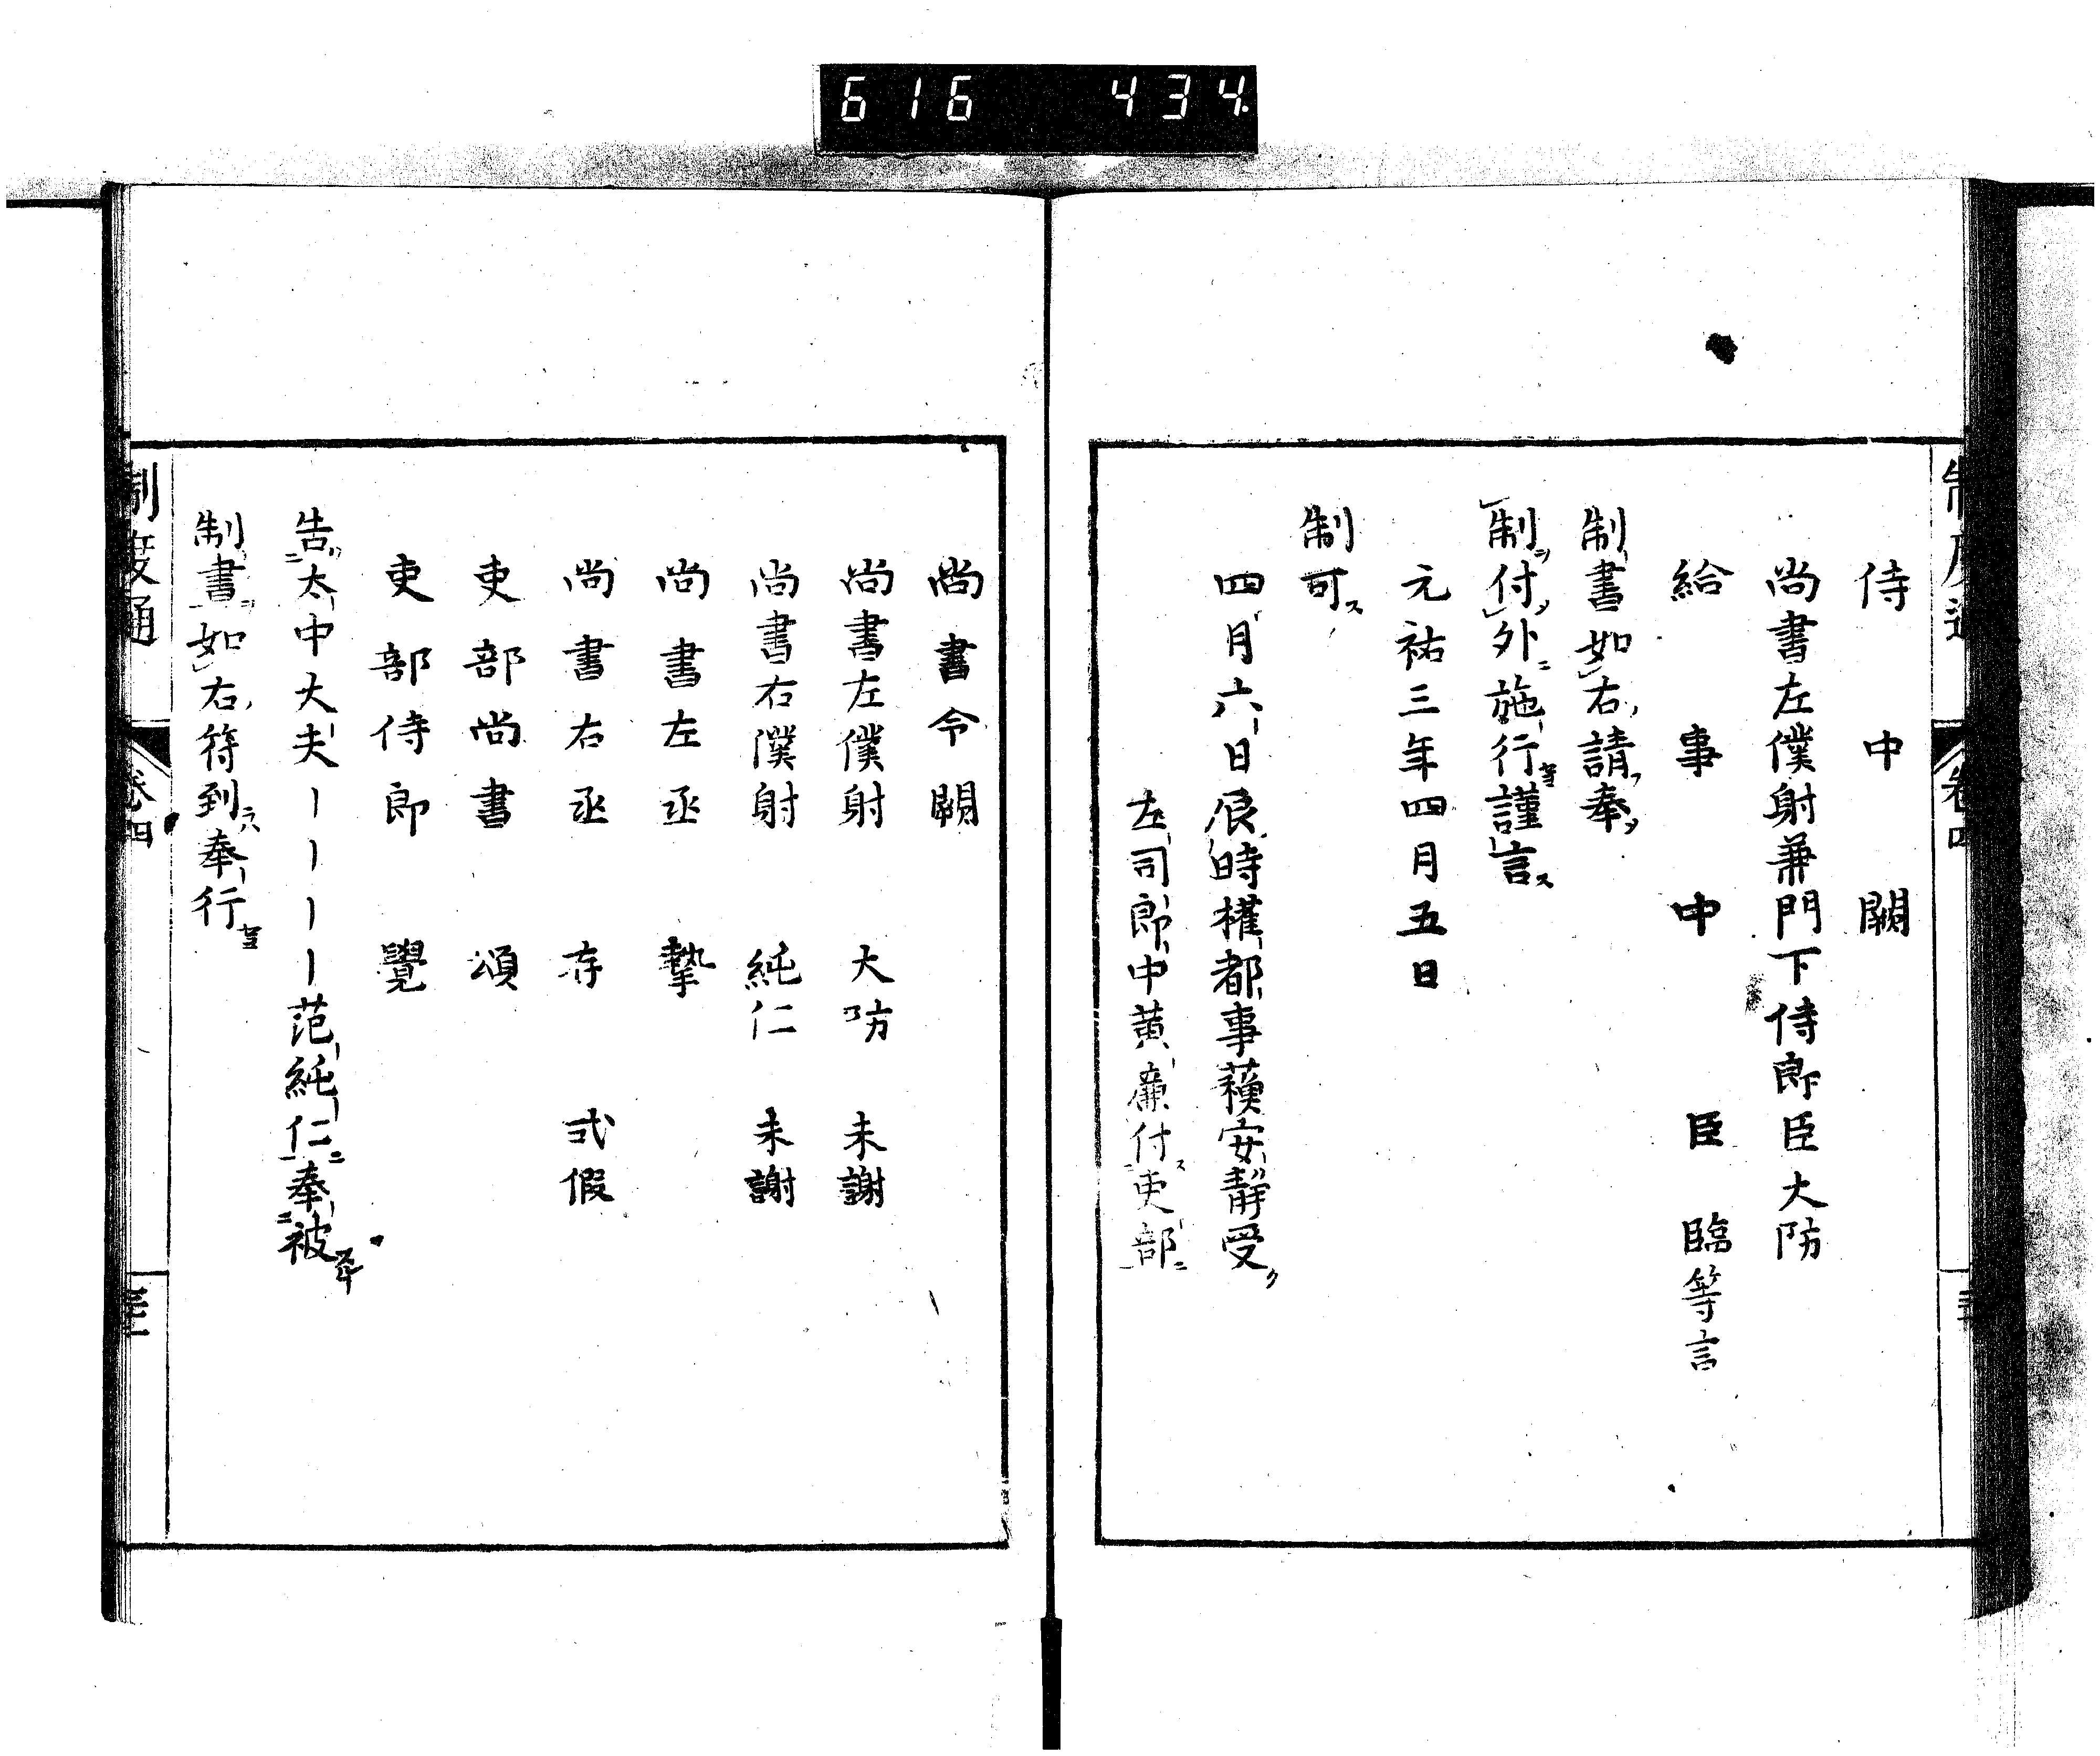 616 434
制度通 卷四
侍中闕
尚書左僕射兼門下侍郎臣大防
給事中臣臨等言
制書如右請奉
制付外施行謹言
元祐三年四月五日
制可
四月六日辰時權都事蘓安靜受
左司郎中黄廉付吏部
尚書令闕
尚書左僕射 大防 未謝
尚書右僕射 純仁 未謝
尚書左丞 摯
尚書右丞 存 式假
吏部尚書 頌
吏部侍郎 覺
告太中大夫｜｜｜｜范純仁奉被
制書如右符到奉行
制度通 卷四